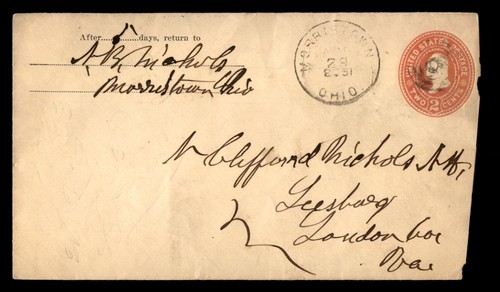 After 5 days, return to
A. B. Nichols
Morristown Ohio
MORRISTOWN
23
OHIO
UNITED STATES POSTAGE
TWO 2 CENTS
Clifford Nichols
Leesburg
Loudon Co
Va